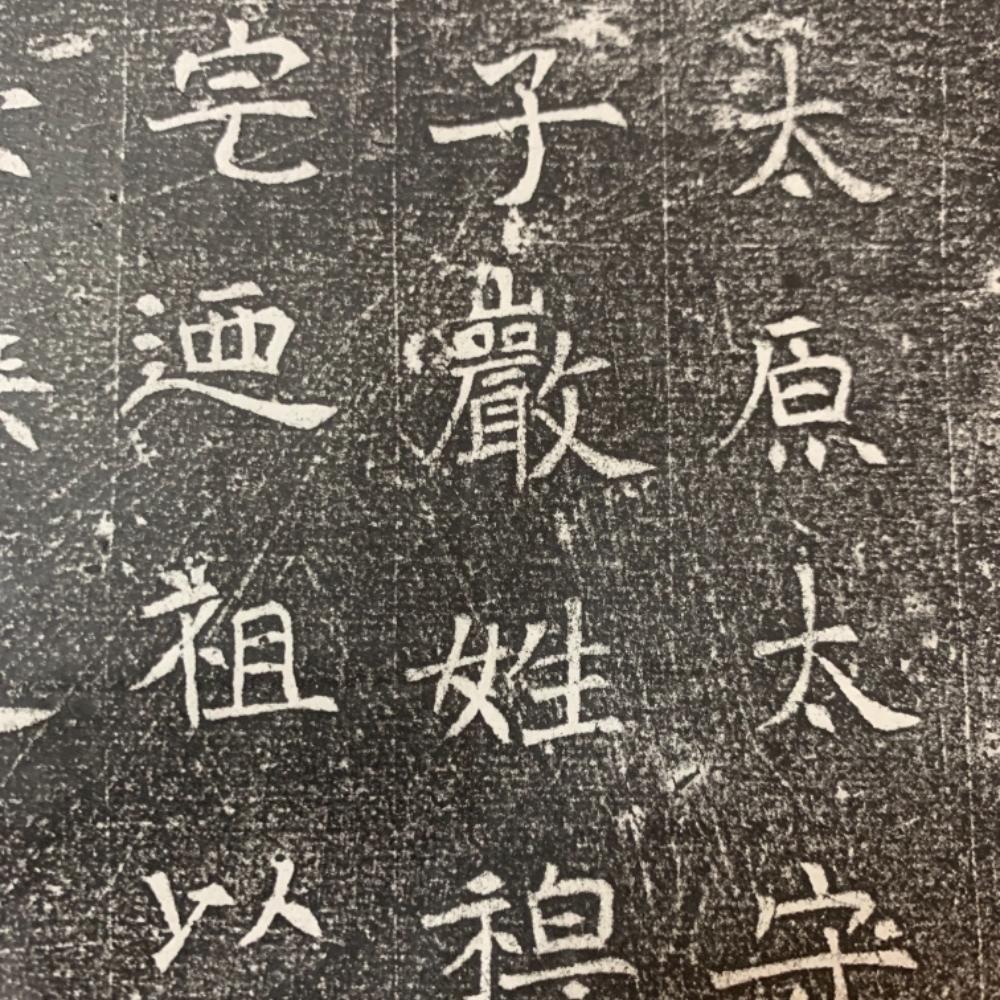 太原太守
子巖姓禊
宅迺祖以